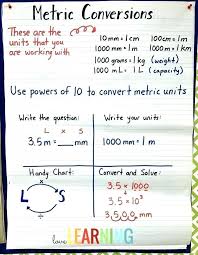 Metric Conversions
These are the
units that you
are working with
10mm = 1cm
100cm = 1m
1000 mm = 1m
1000m = 1km
1000 grams = 1kg (weight)
1000 mL = 1L (capacity)
Use powers of 10 to convert metric units
Write the question:
L x S
3.5m = ___ mm
Write your units:
1000mm = 1m
Handy Chart:
x
L S
÷
Convert and Solve:
3.5 x 1000
3.5 x 10³
3,500 mm
love,
LEARNING